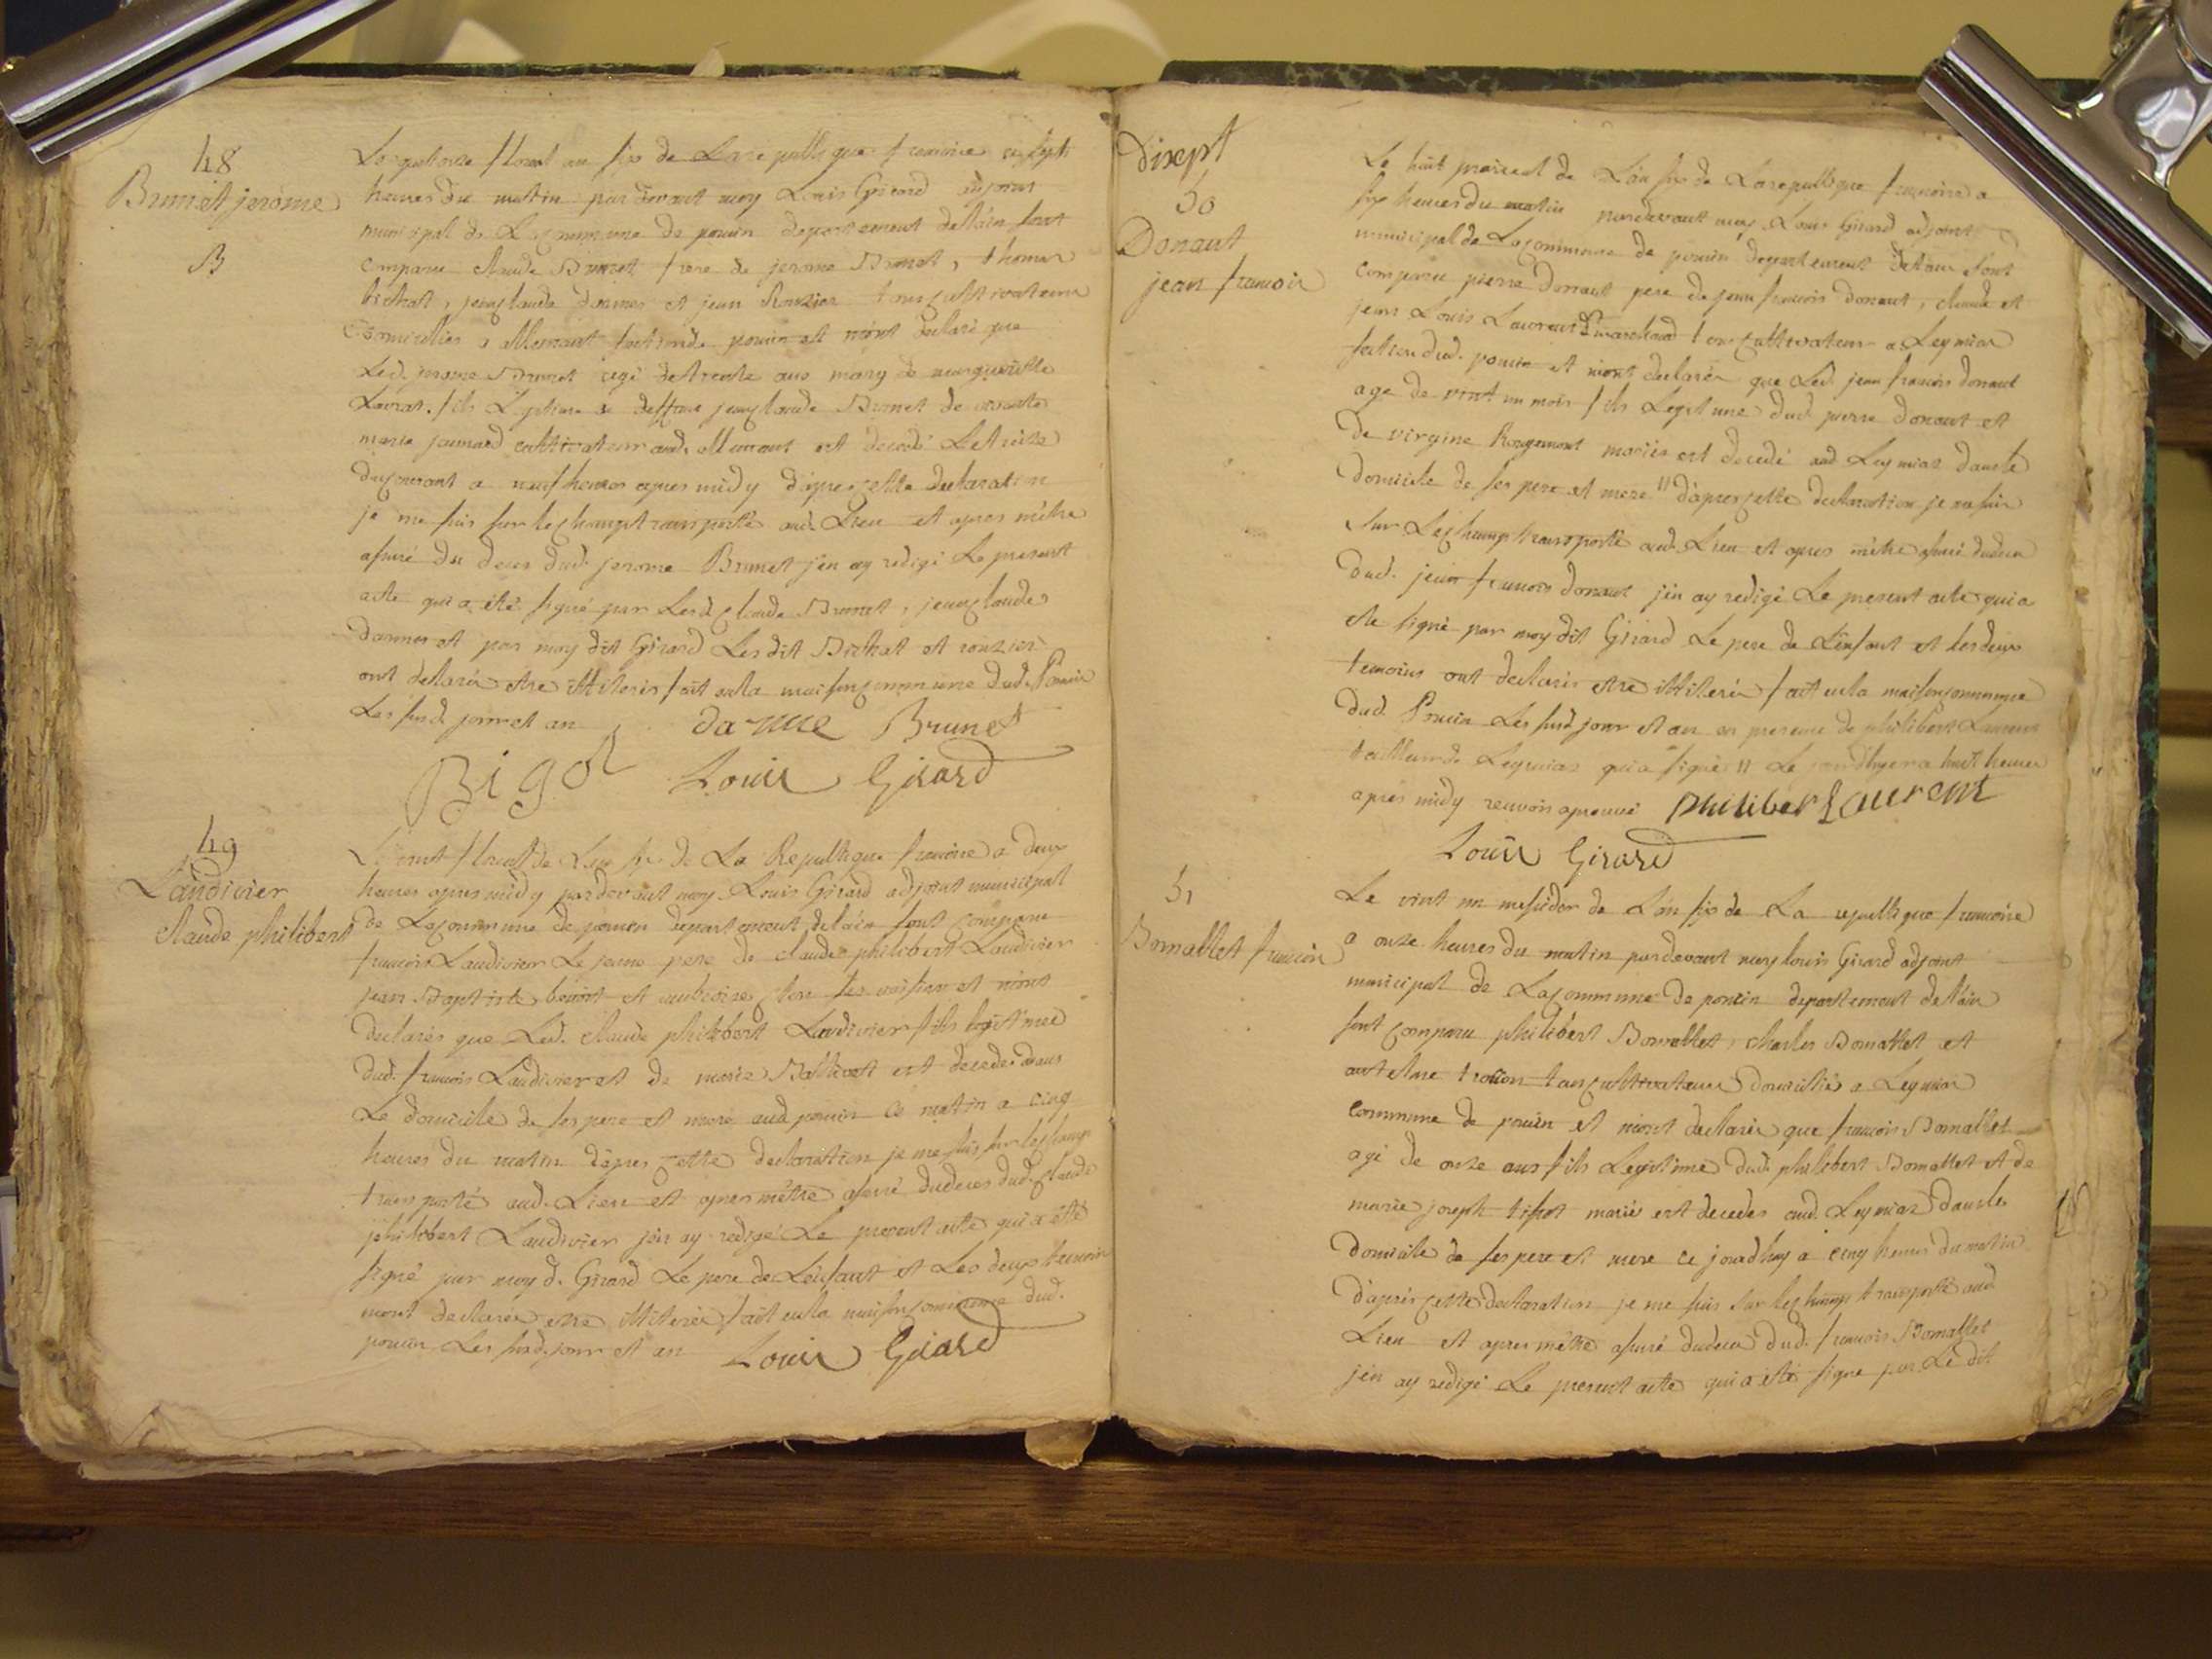 48
Brunet jerome
B
Le quatorze floreal an six de La republique francoise a sept
heures du matin par devant moy Louis Girard adjoint
municipal de La commune de poncin departement de l'ain sont
comparu claude Brunet frere de jerome Brunet, thomas
bichat, jeanclaude darmes et jean Rouzier tous cultivateurs
domicilies a allement section de poncin et m'ont declaré que
Led. jerome Brunet agé de trente ans mary de margueritte
Lavrat. fils Legitime de deffunt jeanclaude Brunet de vivante
marie jannard cultivateur aud. allemant est decedé Le treize
du courant a neuf heures apres midy d'apres cette declaration
je me suis sur le champ transporté aud. Lieu et apres m'etre
assuré du deces dud. jerome Brunet j'en ay redigé Le present
acte qui a été signé par Lesd. claude Brunet, jeanclaude
darmes et par moy dit Girard Les dit Bichat et rouzier
ont declarés etre illiterés fait en la maison commune dud. Poncin
Les susd. jour et an darme Brunet
Bigot Louis Girard
49
Landivier
claude philibert
Le vint floreal de L'an six de La Republique francoise a deux
heures apres midy pardevant moy Louis Girard adjoint municipal
de La commune de poncin departement de l'ain sont comparu
francois Laudivier Le jeune pere de claude philibert Laudivier
jean Baptiste benoit et ambroise ses voisins et m'ont
declarés que Led. claude philibert Laudivier fils legitimee
dud. francois Laudivier et de marie Ballivet est decedé dans
Le domicile de ses pere et mere aud. poncin ce matin a cinq
heures du matin d'apres cette declaration je me suis sur le champ
transporté aud. Lieu et apres m'etre assuré du deces dud. claude
philibert Laudivier j'en ay redigé Le present acte qui a été
signé par moy d. Girard Le pere de L'enfant et Les deux temoins
m'ont declarés etre illiterés fait en la maison commune dud.
poncin Les susd. jour et an Louis Girard
Dixept
50
Donaut
jean francois
Le huit prairial de L'an six de La republique francoise a
six heures du matin pardevant moy Louis Girard adjoint
municipal de La commune de poncin departement de l'ain sont
comparu pierre donaut pere de jean francois donaut, claude et
jean Louis Laurent marchand tous cultivateurs a Leymiar
section dud. poncin et m'ont declarés que Led. jean francois donaut
age de vint un mois fils Legitime dud. pierre donaut et
de virgine Rougemont mariés est decedé aud. Leymiar dans le
domicile de ses pere et mere // d'apres cette declaration je me suis
sur Le champ transporté aud. Lieu et apres m'etre assuré du deces
dud. jean francois donaut j'en ay redigé Le present acte qui a
ete signé par moy dit Girard Le pere de L'enfant et les deux
temoins ont declarés etre illiterés fait en la maison commune
dud. Poncin Les susd. jour et an en presence de philibert Laurent
tailleur de Leymiar qui a signé // Le jourd'hyer a huit heures
apres midy renvois aprouvé Philiber Laurent
Louis Girard
51
Bomallet francois
Le vint un messidor de L'an six de La republique francoise
a onze heures du matin pardevant moy louis Girard adjoint
municipal de La commune de poncin departement de l'ain
sont comparu philibert Bomallet, charles Bomallet et
antelme trocon tous cultivateurs domiciliés a Leymiar
commune de poncin et m'ont declarés que francois Bomallet
agé de onze ans fils Legitime dud. philibert Bomallet et de
marie joseph tissot mariés est decedes aud. Leymiar dans le
domicile de ses pere et mere ce jourd'huy a cinq heures du matin
d'aprés cette declaration je me suis sur le champ transporté aud.
Lieu et apres m'etre assuré du deces dud. francois Bomallet
j'en ay redigé Le present acte qui a été signe par Le dit